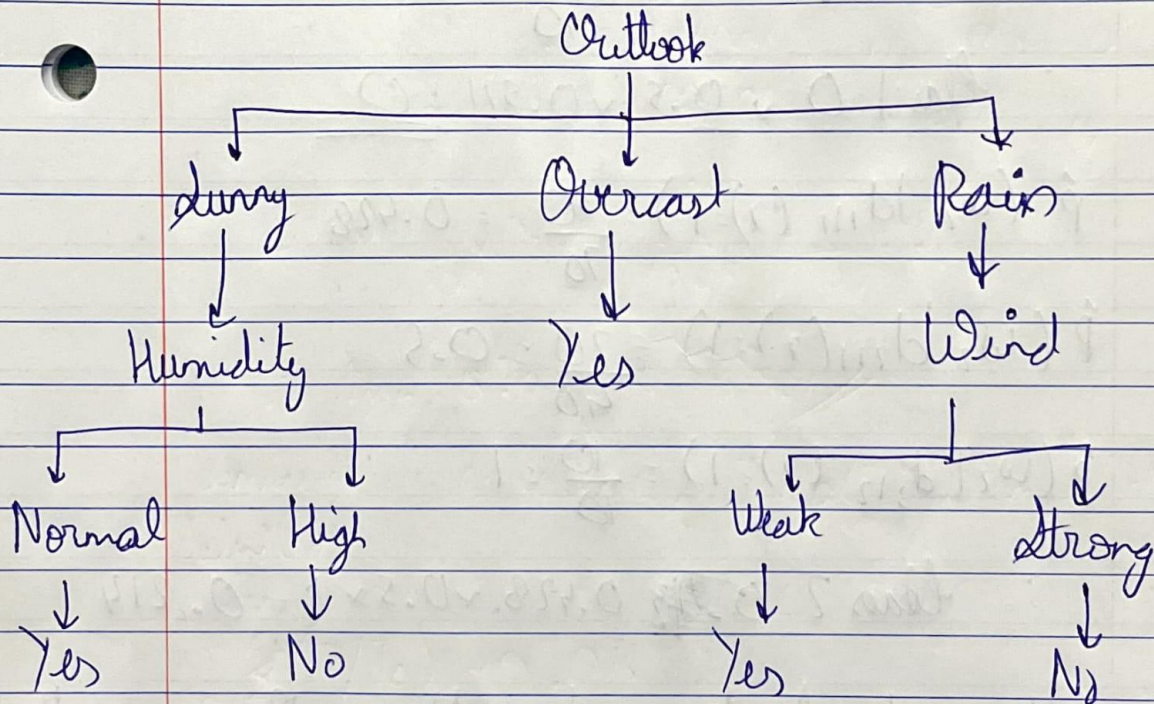 Outlook
Sunny Overcast Rain
Humidity Yes Wind
Normal High Weak Strong
Yes No Yes No